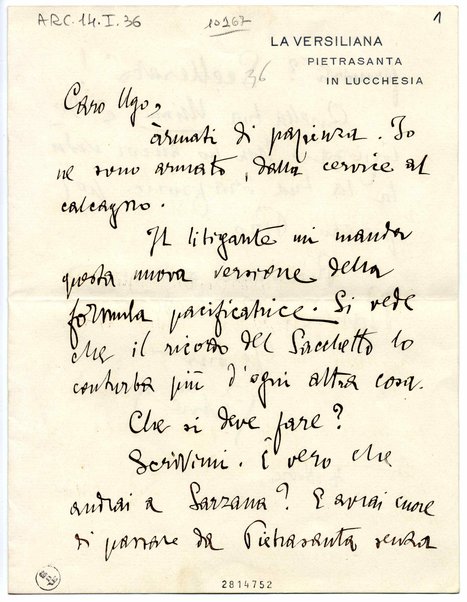 ARC. 14. I. 36
10167
1
LA VERSILIANA
PIETRASANTA
IN LUCCHESIA
36
Caro Ugo,
armati di pazienza. Io
ne sono armato, dalla cervice al
calcagno.
Il litigante mi manda
questa nuova versione della
formula pacificatrice. Si vede
che il ricordo del Sacchetto lo
conturba più d'ogni altra cosa.
Che si deve fare?
Scrivimi. È vero che
andrai a Sarzana? E avrai cuore
di passare da Pietrasanta senza
2814752